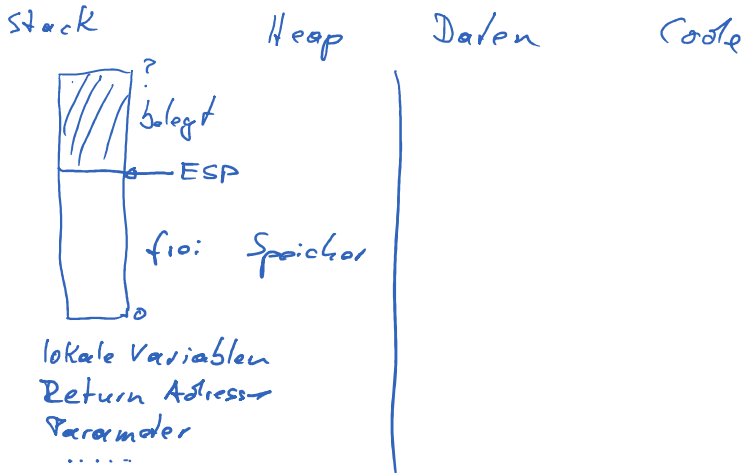 Stack Heap Daten Code
?
belegt
ESP
frei Speicher
0
lokale Variablen
Return Adresse
Parameter
.....